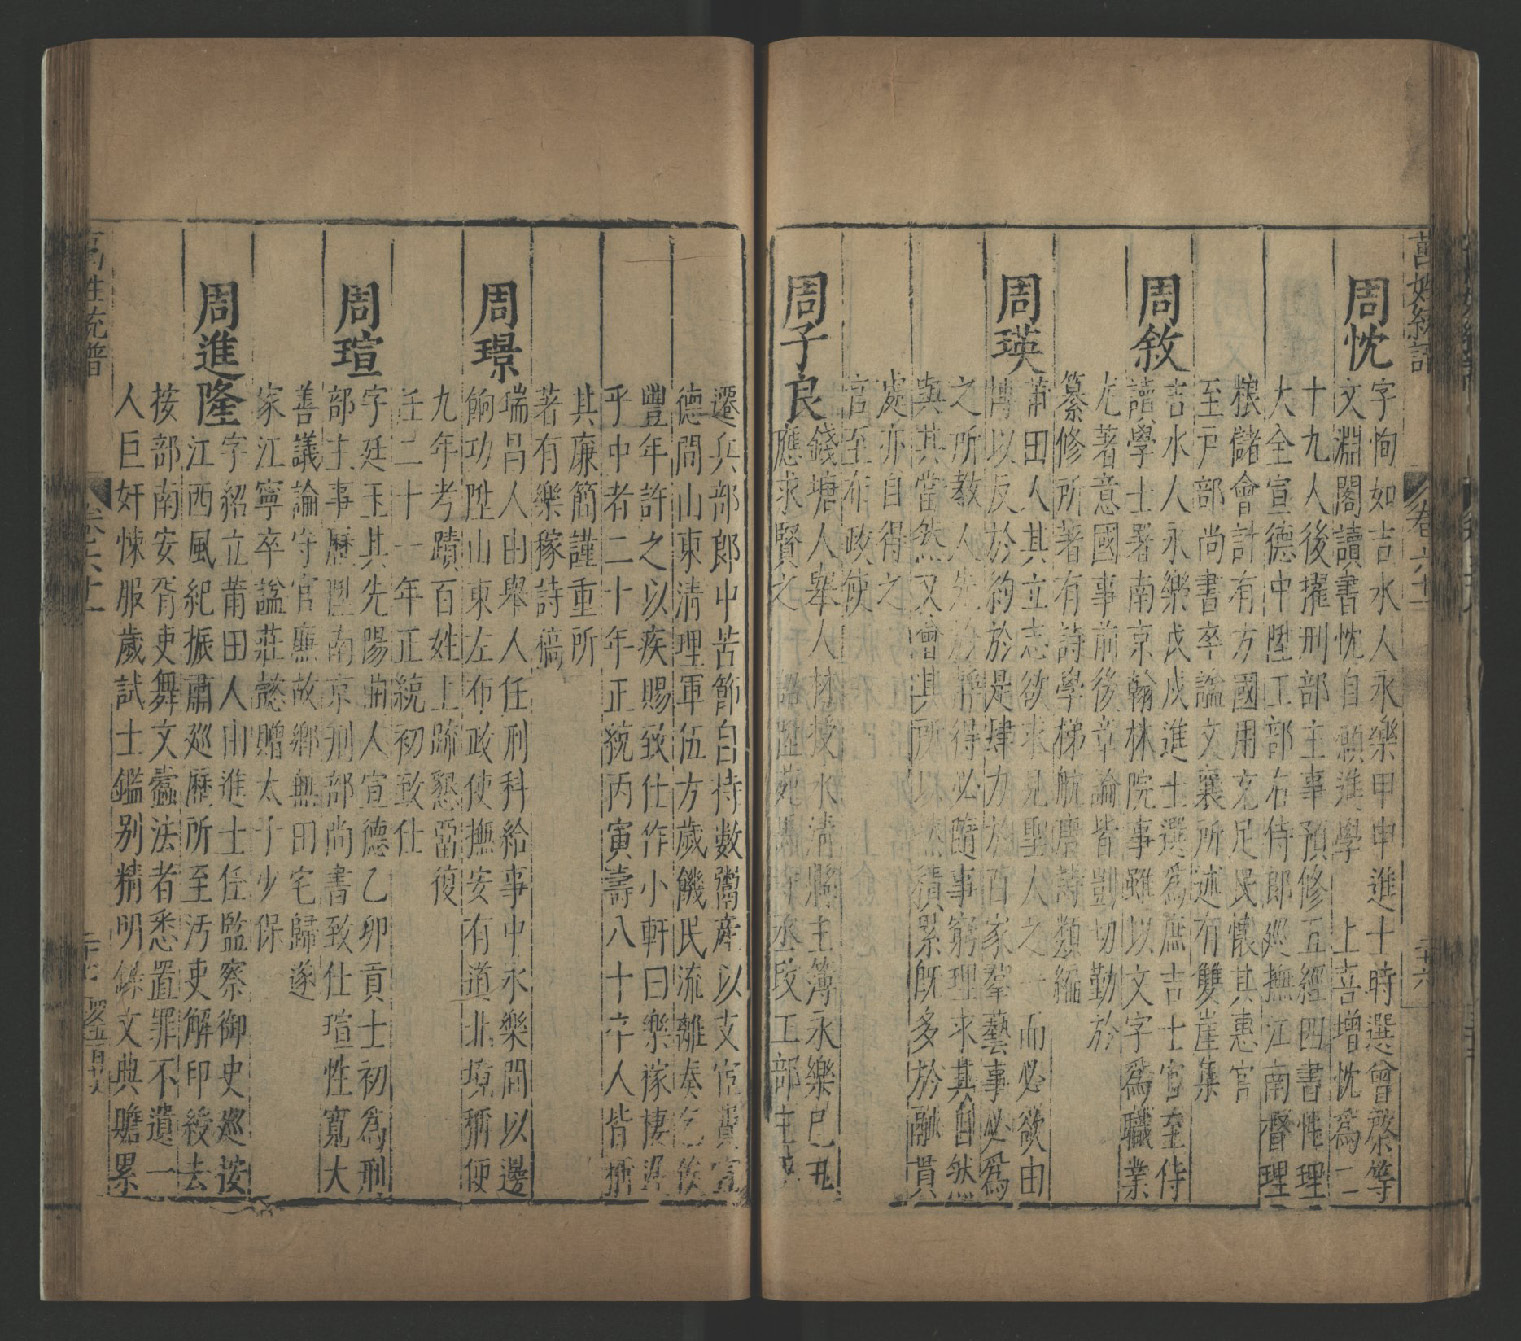 萬姓統譜
卷六十一
周忱
字恂如吉水人永樂甲申進士時選曾棨等
文淵閣讀書忱自願進學 上喜增忱爲二
十九人後擢刑部主事預修五經四書性理
大全宣德中陞工部右侍郎廵撫江南督理
糧儲會計有方國用充足民懷其惠官
至戸部尚書卒諡文襄所述有雙崖集
周敘
吉水人永樂戊戌進士選爲庶吉士官至侍
讀學士署南京翰林院事雖以文字爲職業
尤著意國事前後章論皆剴切勤於
纂修所著有詩學梯航唐詩類編
周瑛
莆田人其立志欲求見聖人之 而必欲由
博以反於約於是肆力於百家羣藝事必爲
之所教人先 得必隨事窮理求其自然
與其當然又會其所以然積累旣多於融貫
處亦自得之
官至布政使
周子良
錢塘人舉人 水淸縣主簿永樂己丑
應求賢之 丞改工部主事
遷兵部郎中苦節自持數鬻產以支官費宣
德間山東淸理軍伍方歲饑民流離奏乞俟
豐年許之以疾賜致仕作小軒曰樂稼棲遲
乎中者二十年正統丙寅壽八十卒人皆
其廉簡謹重所
著有樂稼詩稿
周璟
瑞昌人由舉人任刑科給事中永樂間以邊
餉功陞山東左布政使撫安有道北境稱便
九年考蹟百姓上疏懇畱復
任二十一年正統初致仕
周瑄
字廷玉其先陽曲人宣德乙卯貢士初爲刑
部主事歷陞南京刑部尚書致仕瑄性寬大
善議論守官廉故鄉無田宅歸遂
家江寧卒諡莊懿贈太子少保
周進隆
字紹立莆田人由進士任監察御史廵按
江西風紀振肅廵歷所至汚吏解印綬去
按部南安胥吏舞文蠹法者悉置罪不遺一
人巨奸悚服歲試士鑑别精明錄文典贍累
萬姓統譜
卷六十一